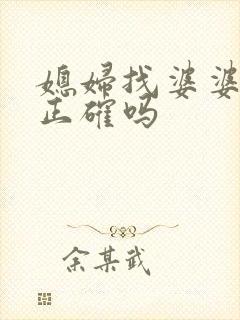 媳婦找婆婆
正確嗎
余某武